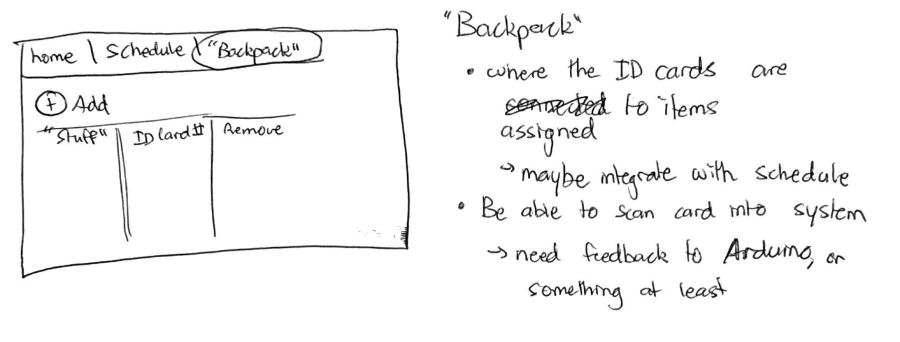 home | Schedule | "Backpack"
+ Add
"Stuff" | ID Card # | Remove
"Backpack"
• where the ID cards are
connected to items
assigned
→ maybe integrate with schedule
• Be able to scan card into system
→ need feedback to Arduino, or
something at least